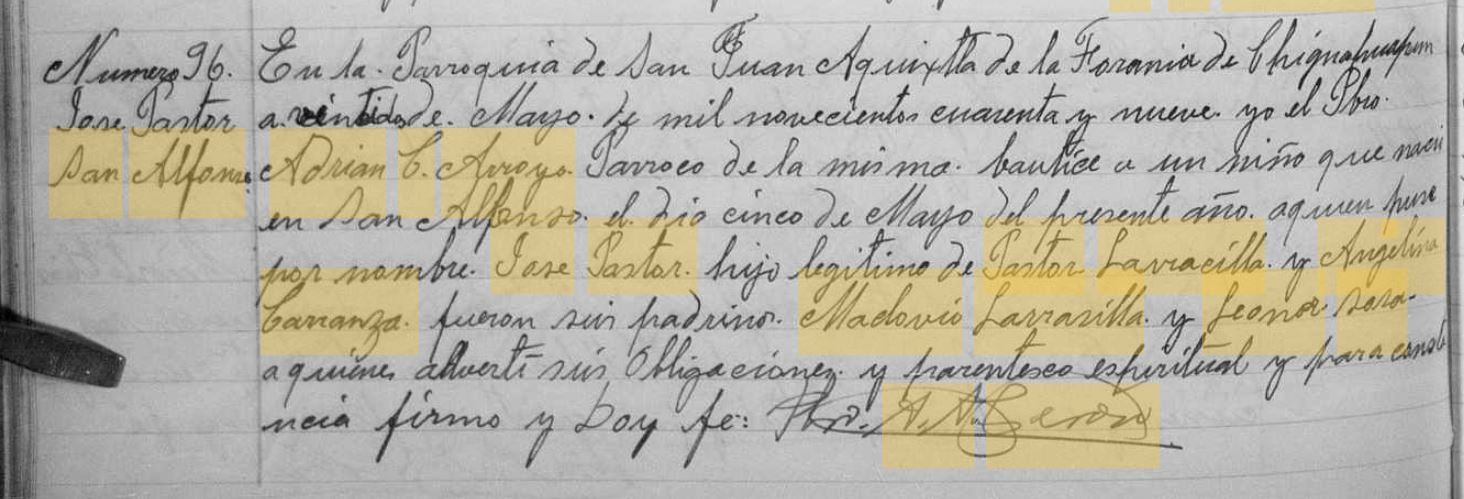 Numero 96. En la. Parroquia de San Juan Aquixtla de la Forania de Chignahuapan
Jose Pastor a. veintidos de. Mayo. de mil novecientos cuarenta y nueve. yo el Pbro.
San Alfonso. Adrian C. Arroyo. Parroco de la misma. bautice a un niño que nacio
en San Alfonso. el. dia cinco de Mayo del presente año. aquien puse
por nombre. Jose Pastor. hijo legitimo de Pastor Larracilla. y Angelina
Carranza. fueron sus padrinos. Maclovio Larrasilla. y Leonor. Sosa.
aquienes adverti sus Obligaciones. y parentesco espiritual y para consta
ncia firmo y Doy fe: Pbro. A.